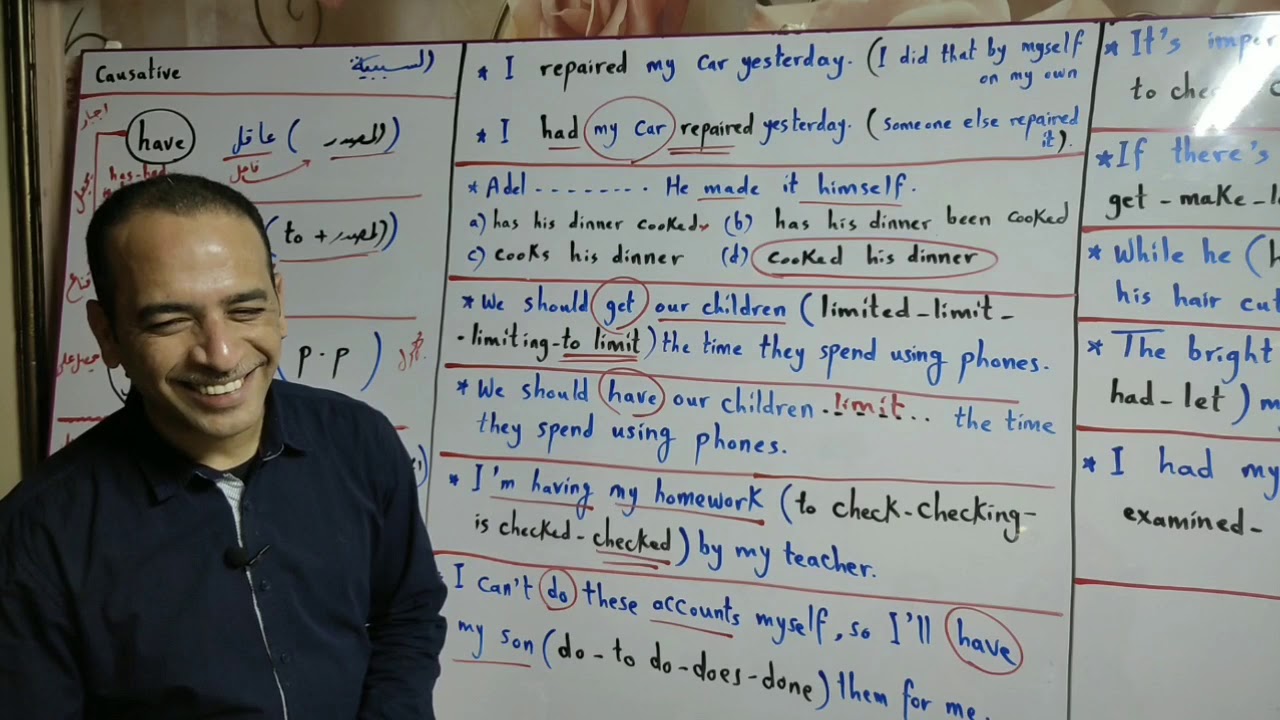 Causative السببية
اجبار
have عاقل (المصدر)
فاعل
has-had
يجعل
(to + المصدر)
(p.p)
* I repaired my car yesterday. (I did that by myself
on my own
* I had my car repaired yesterday. (someone else repaired
it).
* Adel -------- . He made it himself.
a) has his dinner cooked (b) has his dinner been cooked
c) cooks his dinner (d) cooked his dinner
* We should get our children (limited-limit-
-limiting-to limit) the time they spend using phones.
* We should have our children .limit... the time
they spend using phones.
* I'm having my homework (to check-checking-
is checked-checked) by my teacher.
I can't do these accounts myself, so I'll have
my son (do-to do-does-done) them for me.
* It's imper
to che
* If there's
get-make-l
* While he (h
his hair cut
* The bright
had-let) m
* I had my
examined-